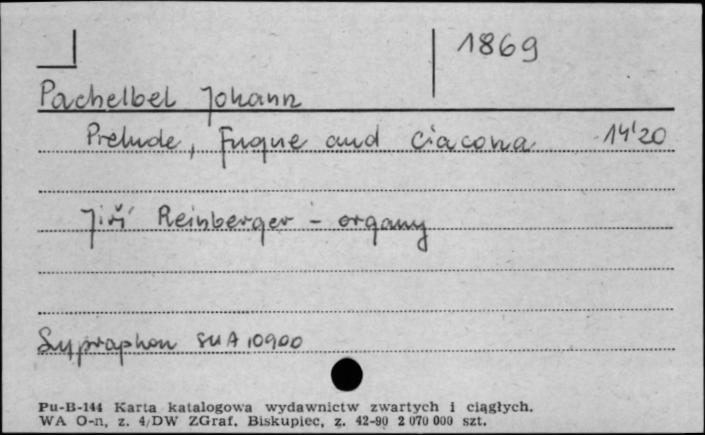 1869
Pachelbel Johann
Prelude, Fugue and Ciacona 14'20
Jiří Reinberger - organy
Supraphon SUA 10900
Pu-B-144 Karta katalogowa wydawnictw zwartych i ciągłych.
WA O-n, z. 4/DW ZGraf. Biskupiec, z. 42-90 2 070 000 szt.